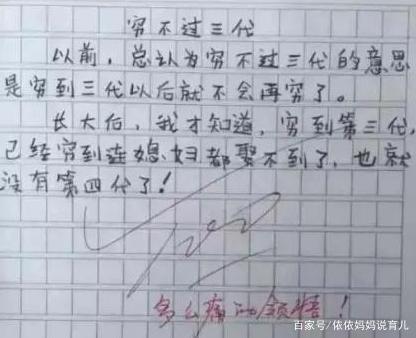 穷不过三代
以前，总认为穷不过三代的意思
是穷到三代以后就不会再穷了。
长大后，我才知道，穷到第三代，
已经穷到连媳妇都娶不到了，也就
没有第四代了！
100
多么痛的领悟！
百家号/依依妈妈说育儿